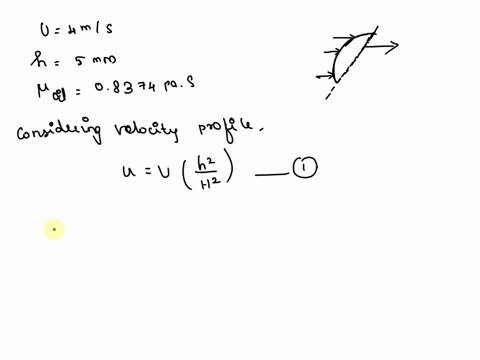 U = 4 m/s
h = 5 mm
μoil = 0.8374 pa.s
Considering velocity profile.
u = U (h²/H²) —— ①